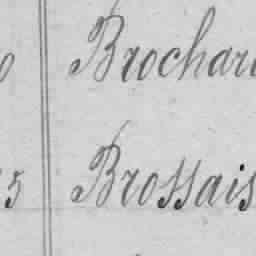 Brochar
5 Brossais